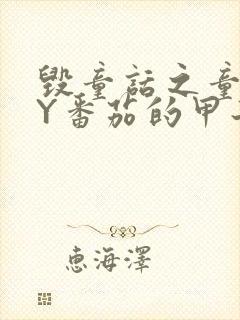 毁童话之童
Y番茄的甲
恵海澤